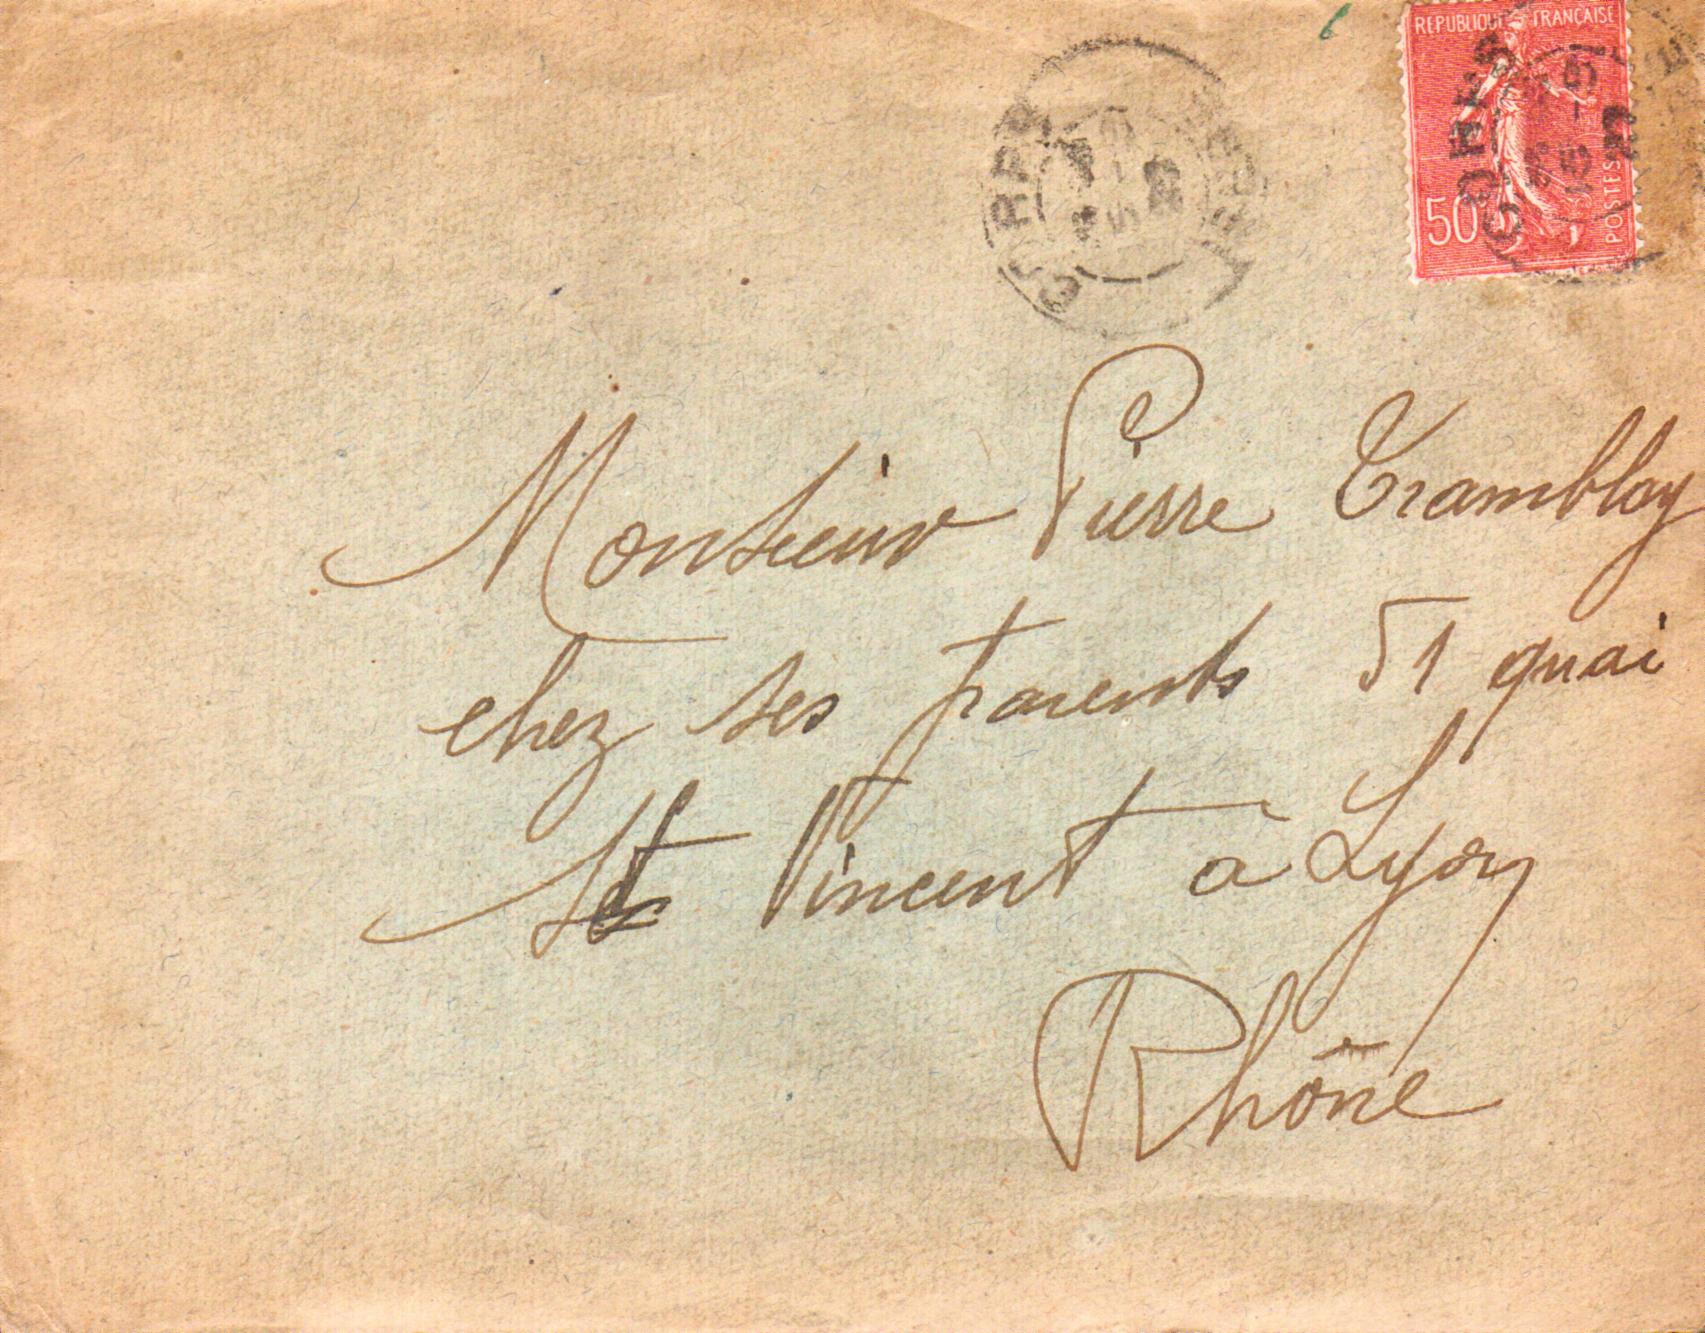 REPUBLIQUE FRANÇAISE
50c
POSTES
CORPS
Monsieur Pierre Tramblay
chez ses parents 51 quai
St Vincent à Lyon
Rhône